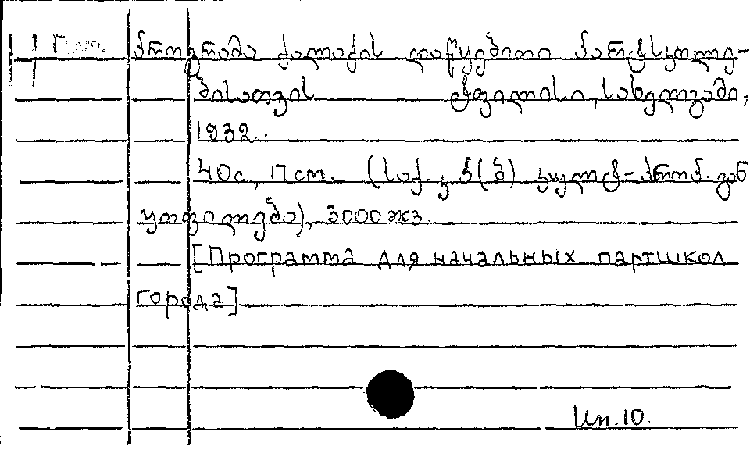 პროგრამა ქალაქის დაწყებითი პარტსკოლე-
ბისათვის ტფილისი, სახელგამი,
1932.
40с, 17cm. (საქ. კ პ(ბ) კულტ-პროპ. გან
ყოფილება), 3000 экз.
[Программа для начальных партшкол
города]
Ип.10.